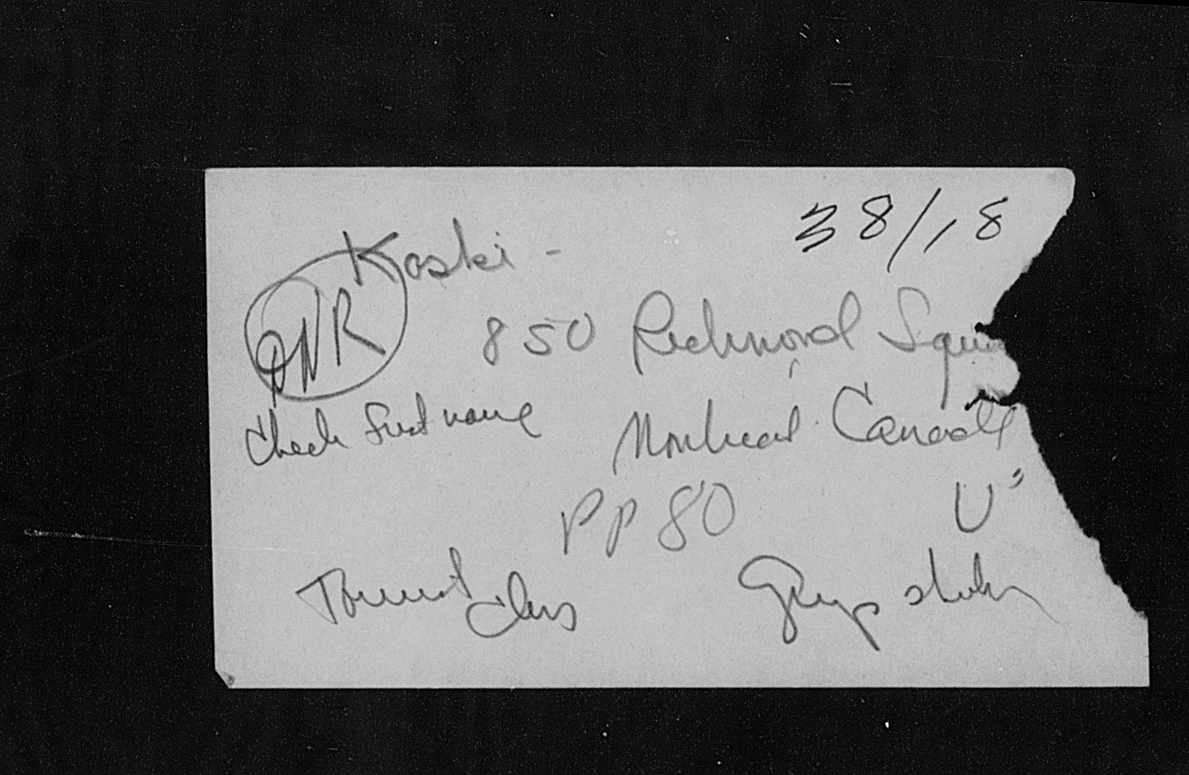 38/18
Koski -
DNR
850 Richmond Squ
Check first name
Montreal. Canada
PP 80
Tourist class
Group